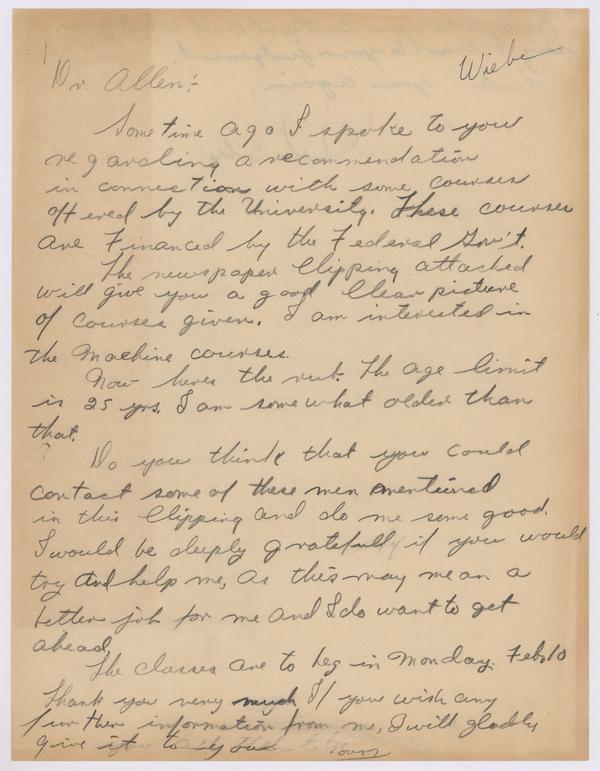 Wiebe
Dr. Allen:-
Sometime ago I spoke to you
regarding a recommendation
in connection with some courses
offered by the University. These courses
are Financed by the Federal Gov't.
The newspaper Clipping attached
will give you a good Clear picture
of courses given. I am interested in
the Machine courses.
Now heres the rub. The age limit
is 25 yrs. I am somewhat older than
that.
Do you think that you could
contact some of these men mentioned
in this Clipping and do me some good.
I would be deeply gratefull if you would
try and help me, as this may mean a
better job for me and I do want to get
ahead
The classes are to begin Monday. Feb. 10
Thank you very much If you wish any
further information from me, I will gladly
give it to